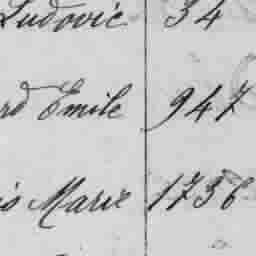 Ludovic 34
rd Emile 947
is Marie 1736